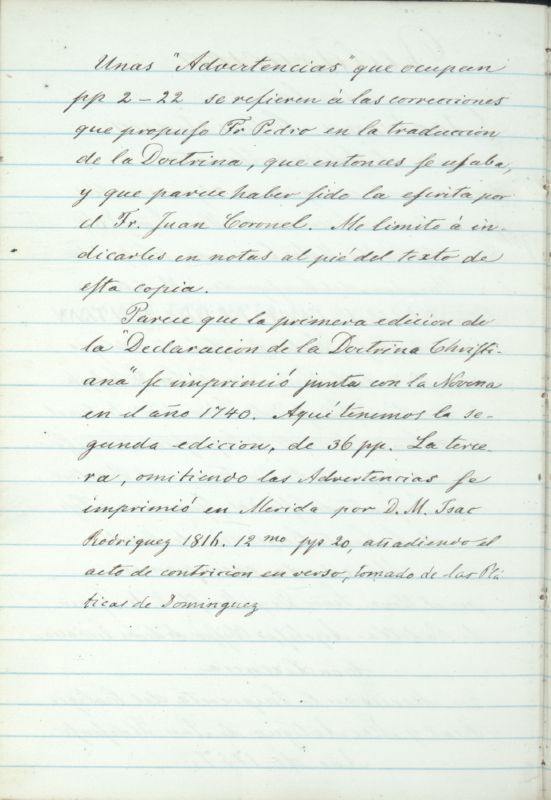 Unas "Advertencias" que ocupan
pp 2-22 se refieren á las correcciones
que propuſo Fr Pedro en la traduccion
de la Doctrina, que entonces ſe uſaba,
y que parece haber ſido la eſcrita por
el Fr. Juan Coronel. Me limito á in-
dicarles en notas al pié del texto de
eſta copia.
Parece que la primera edicion de
la "Declaracion de la Doctrina Chriſti-
ana" ſe imprimió junta con la Novena
en el año 1740. Aquí tenemos la se-
gunda edicion, de 36 pp. La terce-
ra, omitiendo las Advertencias ſe
imprimió en Merida por D. M. Isac
Rodriguez 1816. 12 mo pp 20, añadiendo el
acto de contricion en verso, tomado de las Plá
ticas de Dominguez